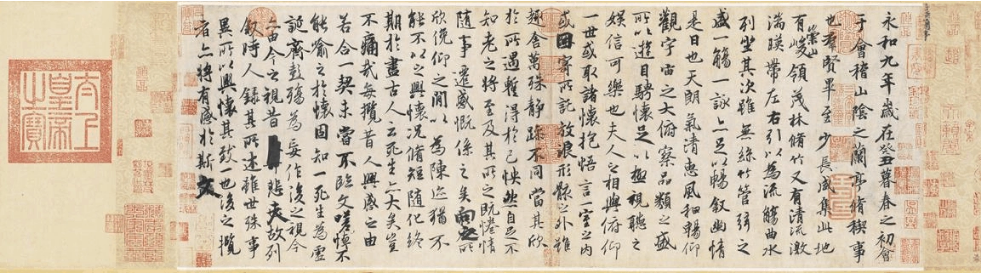 永和九年歲在癸丑暮春之初會
于會稽山陰之蘭亭脩稧事
也羣賢畢至少長咸集此地
有崇山峻領茂林脩竹又有清流激
湍暎帶左右引以為流觴曲水
列坐其次雖無絲竹管弦之
盛一觴一詠亦足以暢敘幽情
是日也天朗氣清惠風和暢仰
觀宇宙之大俯察品類之盛
所以遊目騁懷足以極視聽之
娛信可樂也夫人之相與俯仰
一世或取諸懷抱悟言一室之內
或因寄所託放浪形骸之外雖
趣舍萬殊靜躁不同當其欣
於所遇暫得於己怏然自足不
知老之將至及其所之既惓情
隨事遷感慨係之矣向之所
欣俛仰之間以為陳迹猶不
能不以之興懷況脩短隨化終
期於盡古人云死生亦大矣豈
不痛哉每攬昔人興感之由
若合一契未嘗不臨文嗟悼不
能喻之於懷固知一死生為虛
誕齊彭殤為妄作後之視今
亦由今之視昔悲夫故列
敘時人錄其所述雖世殊事
異所以興懷其致一也後之攬
者亦將有感於斯文
太上皇帝之寶